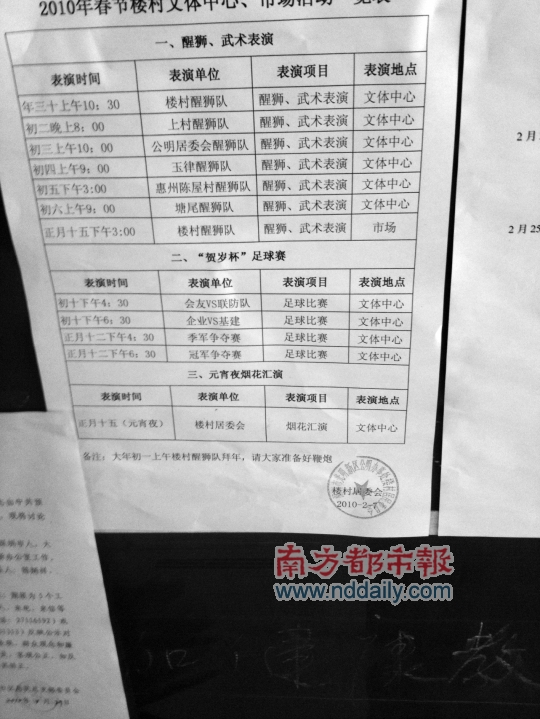 2010年春节楼村文体中心、市场活动一览表
一、醒狮、武术表演
表演时间 表演单位 表演项目 表演地点
年三十上午10：30 楼村醒狮队 醒狮、武术表演 文体中心
初二晚上8：00 上村醒狮队 醒狮、武术表演 文体中心
初三上午10：00 公明居委会醒狮队 醒狮、武术表演 文体中心
初四上午9：00 玉律醒狮队 醒狮、武术表演 文体中心
初五下午3:00 惠州陈屋村醒狮队 醒狮、武术表演 文体中心
初六上午9：00 塘尾醒狮队 醒狮、武术表演 文体中心
正月十五下午3:00 楼村醒狮队 醒狮、武术表演 市场
二、“贺岁杯”足球赛
表演时间 表演单位 表演项目 表演地点
初十下午4：30 会友VS联防队 足球比赛 文体中心
初十下午6：30 企业VS基建 足球比赛 文体中心
正月十二下午4：30 季军争夺赛 足球比赛 文体中心
正月十二下午6：30 冠军争夺赛 足球比赛 文体中心
三、元宵夜烟花汇演
表演时间 表演单位 表演项目 表演地点
正月十五（元宵夜） 楼村居委会 烟花汇演 文体中心
备注：大年初一上午楼村醒狮队拜年，请大家准备好鞭炮
楼村居委会
2010-2-7
2月
2月25
南方都市報
www.nddaily.com